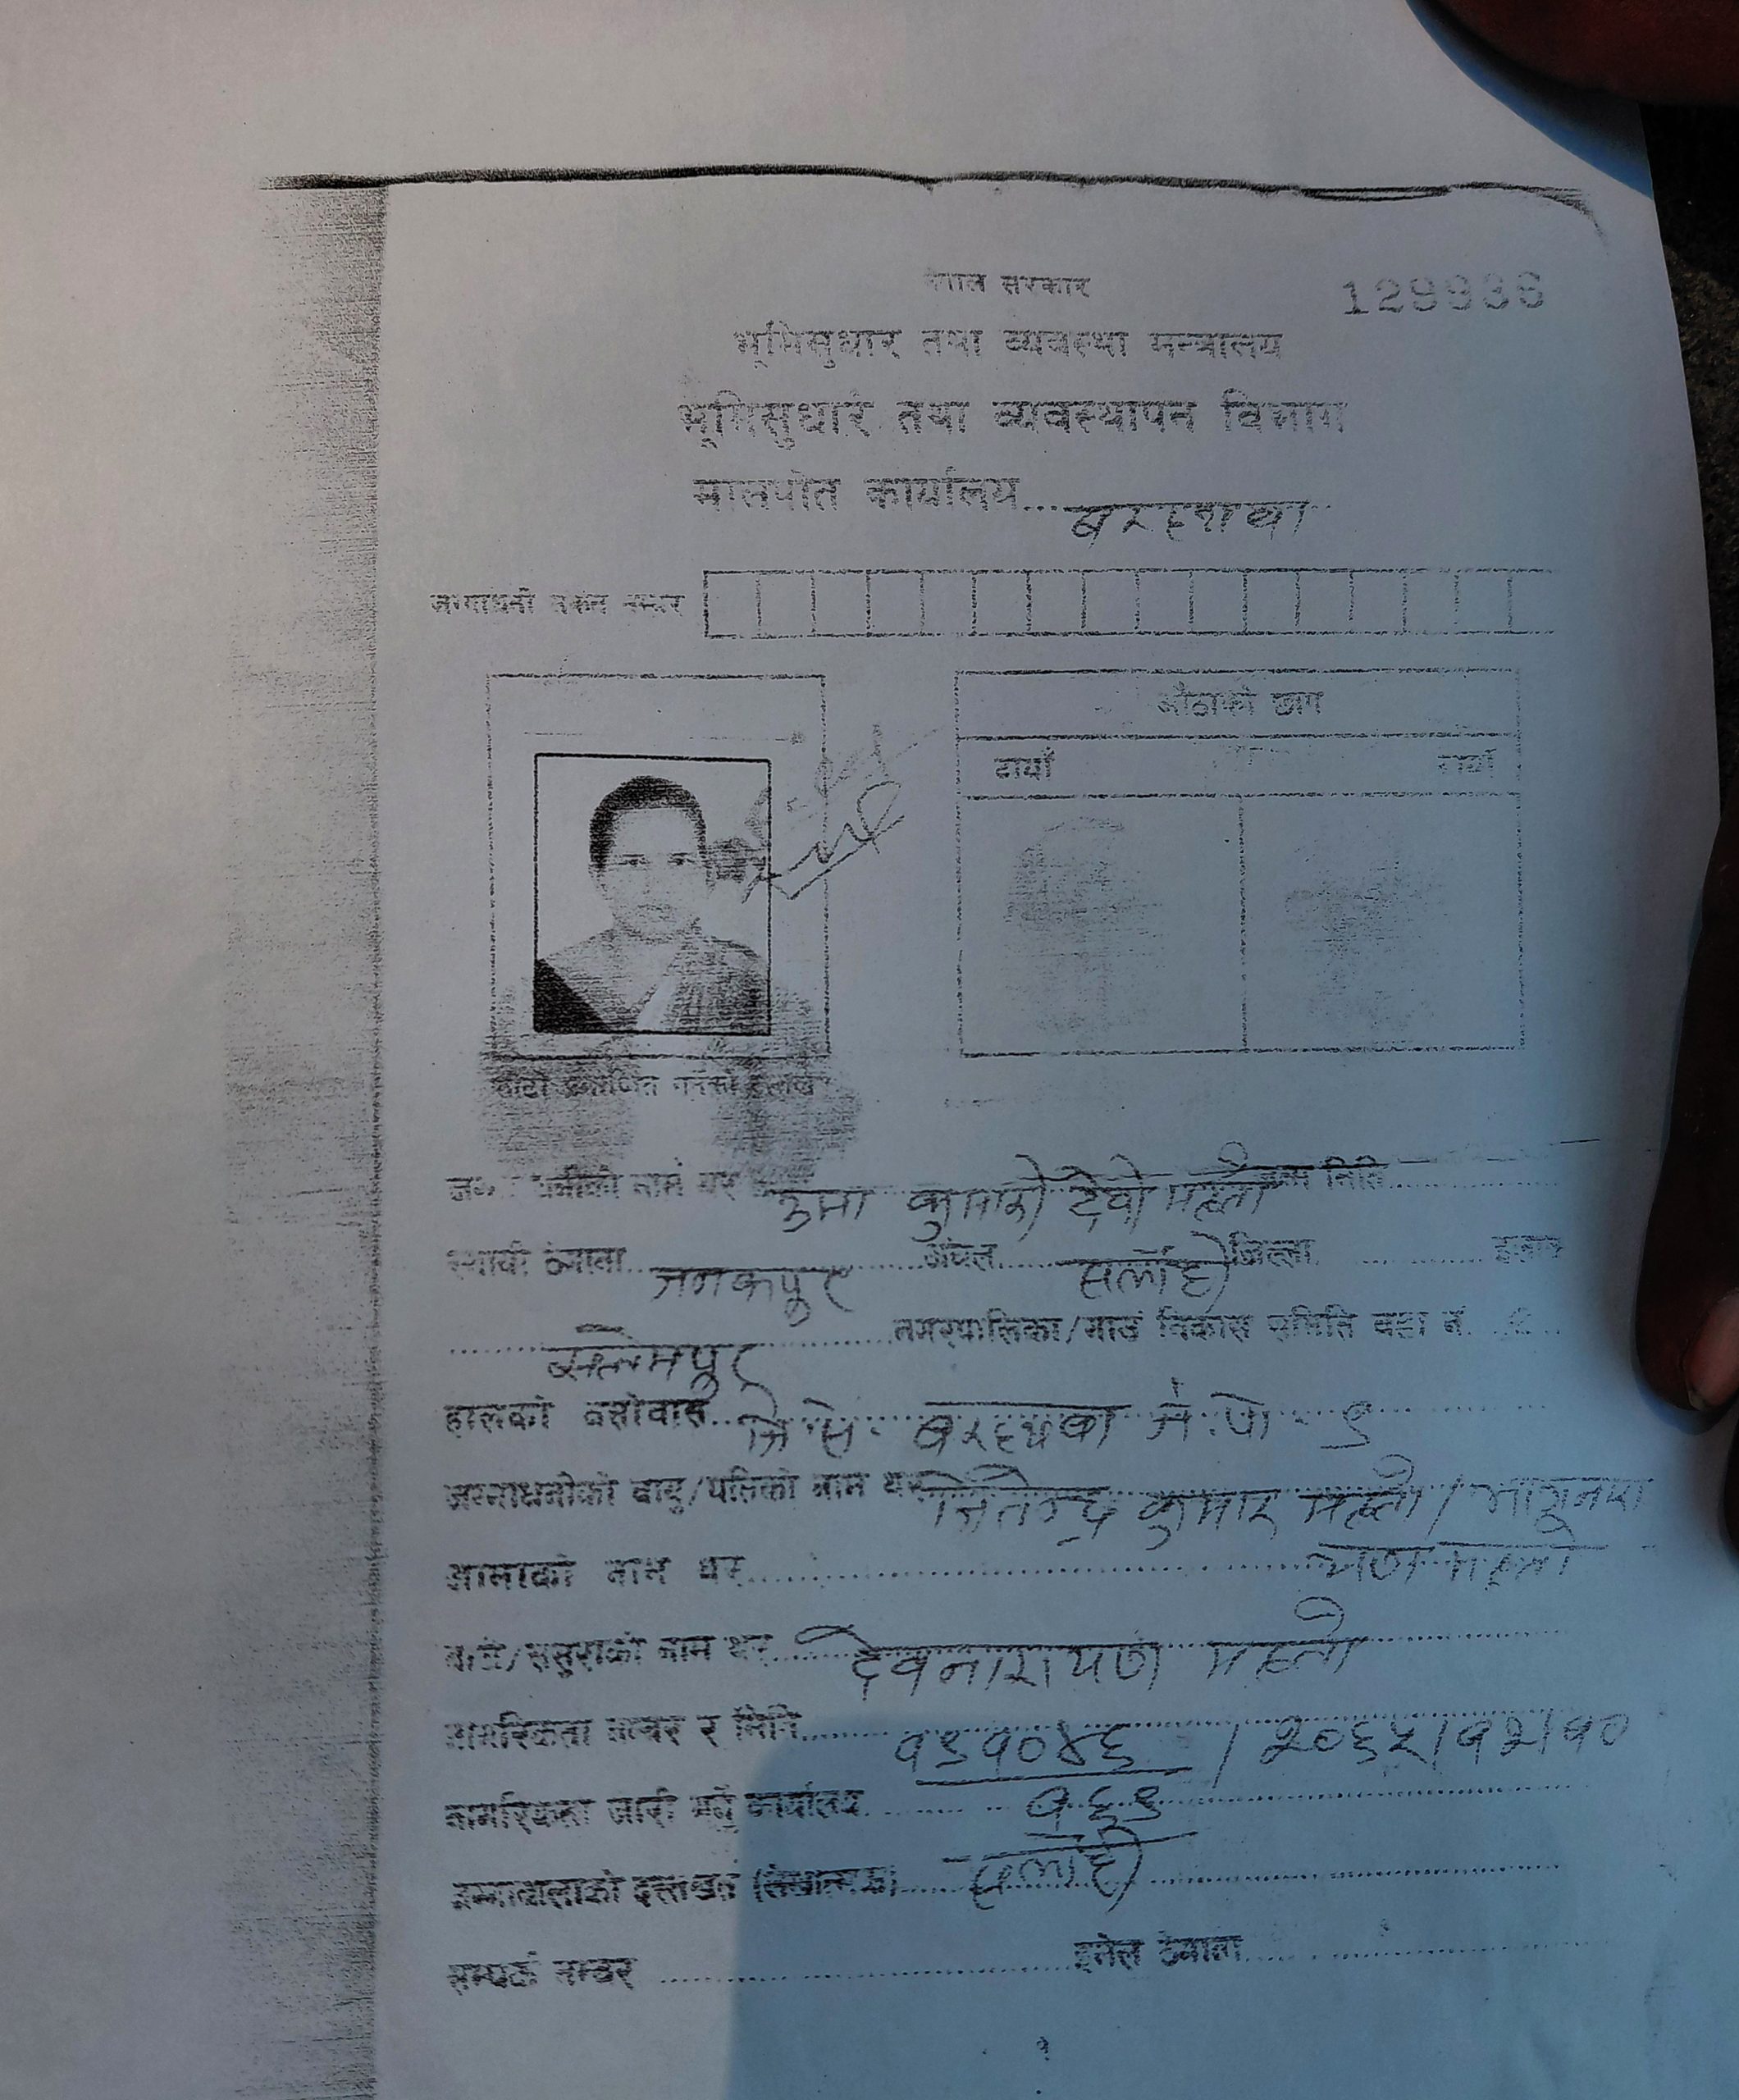 नेपाल सरकार
129936
भूमिसुधार तथा व्यवस्था मन्त्रालय
भूमिसुधार तथा व्यवस्थापन विभाग
मालपोत कार्यालय.... बरहथवा
जग्गाधनी संकेत नम्बर
औंठाको छाप
दायाँ बायाँ
फोटो प्रमाणित गर्नेको दस्तखत
जग्गाधनीको नाम थर उमा कुमारी देवी महतो जन्म मिति
स्थायी ठेगाना जनकपुर अंचल सर्लाही जिल्ला
सलेमपुर नगरपालिका/गाउँ विकास समिति वडा नं.
हालको बसोवास जि.स. बरहथवा न.पा. ९
जग्गाधनीको बाबु/पतिको नाम थर जितेन्द्र कुमार महतो /
आमाको नाम थर
बाजे/ससुराको नाम थर देवनारायण महतो
नागरिकता नम्बर र मिति १९१०४६ / २०६५।१२।१०
१६९
नागरिकता जारी भएको कार्यालय सर्लाही
जग्गावालाको दस्तखत
सम्पर्क नम्बर इमेल ठेगाना
१